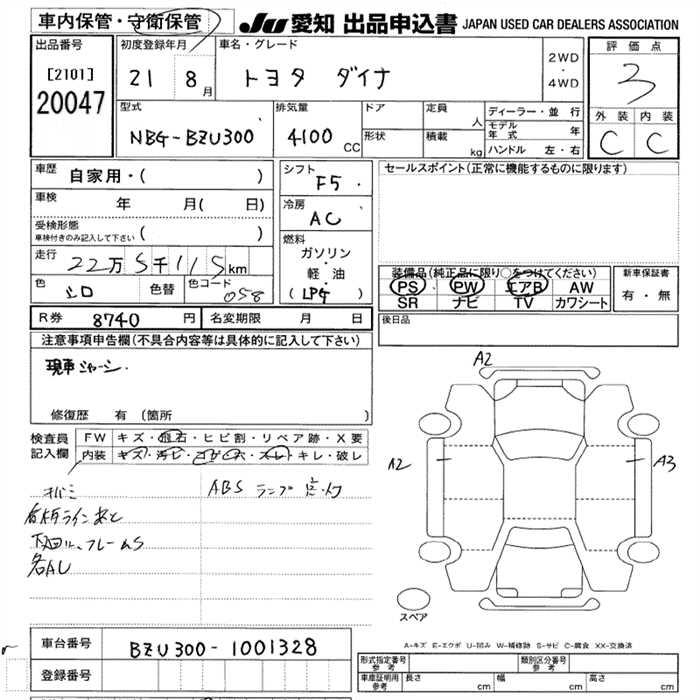 車内保管・守衛保管
JU 愛知 出品申込書 JAPAN USED CAR DEALERS ASSOCIATION
出品番号 初度登録年月 車名・グレード 評価点
[2101] 21 8月 トヨタ ダイナ 2WD・4WD 3
20047
型式 排気量 ドア 定員 人 ディーラー・並行 外装 内装
モデル年式 年
NBG-BZU300 4100 CC 形状 積載 kg ハンドル 左・右 C C
車歴 自家用・( ) シフト F5 セールスポイント(正常に機能するものに限ります)
車検 年 月( 日) 冷房 AC
受検形態
車検付きのみ記入して下さい ( )
燃料
走行 22万5千115km ガソリン・軽油 (LPG) 装備品(純正品に限り○をつけてください) 新車保証書
PS PW エアB AW 有・無
色 シロ 色替 色コード 058 SR ナビ TV カワシート
R券 8740円 名変期限 月 日 後日品
注意事項申告欄(不具合内容等は具体的に記入して下さい)
現車ジャーシ.
修復歴 有 (箇所
A2
A2 A3
検査員記入欄 FW キズ・飛石・ヒビ割・リペア跡・X要
内装 キズ・汚レ・コゲ・穴・スレ・キレ・破レ
ABS ランプ
下回り、フレームS
各AU
スペア
A-キズ E-エクボ U-凹み W-補修跡 S-サビ C-腐食 XX-交換済
車台番号 BZU300-1001328
登録番号
形式指定番号 参考 類別区分番号 参考
車庫証明用 参考 長さ cm 幅 cm 高さ cm